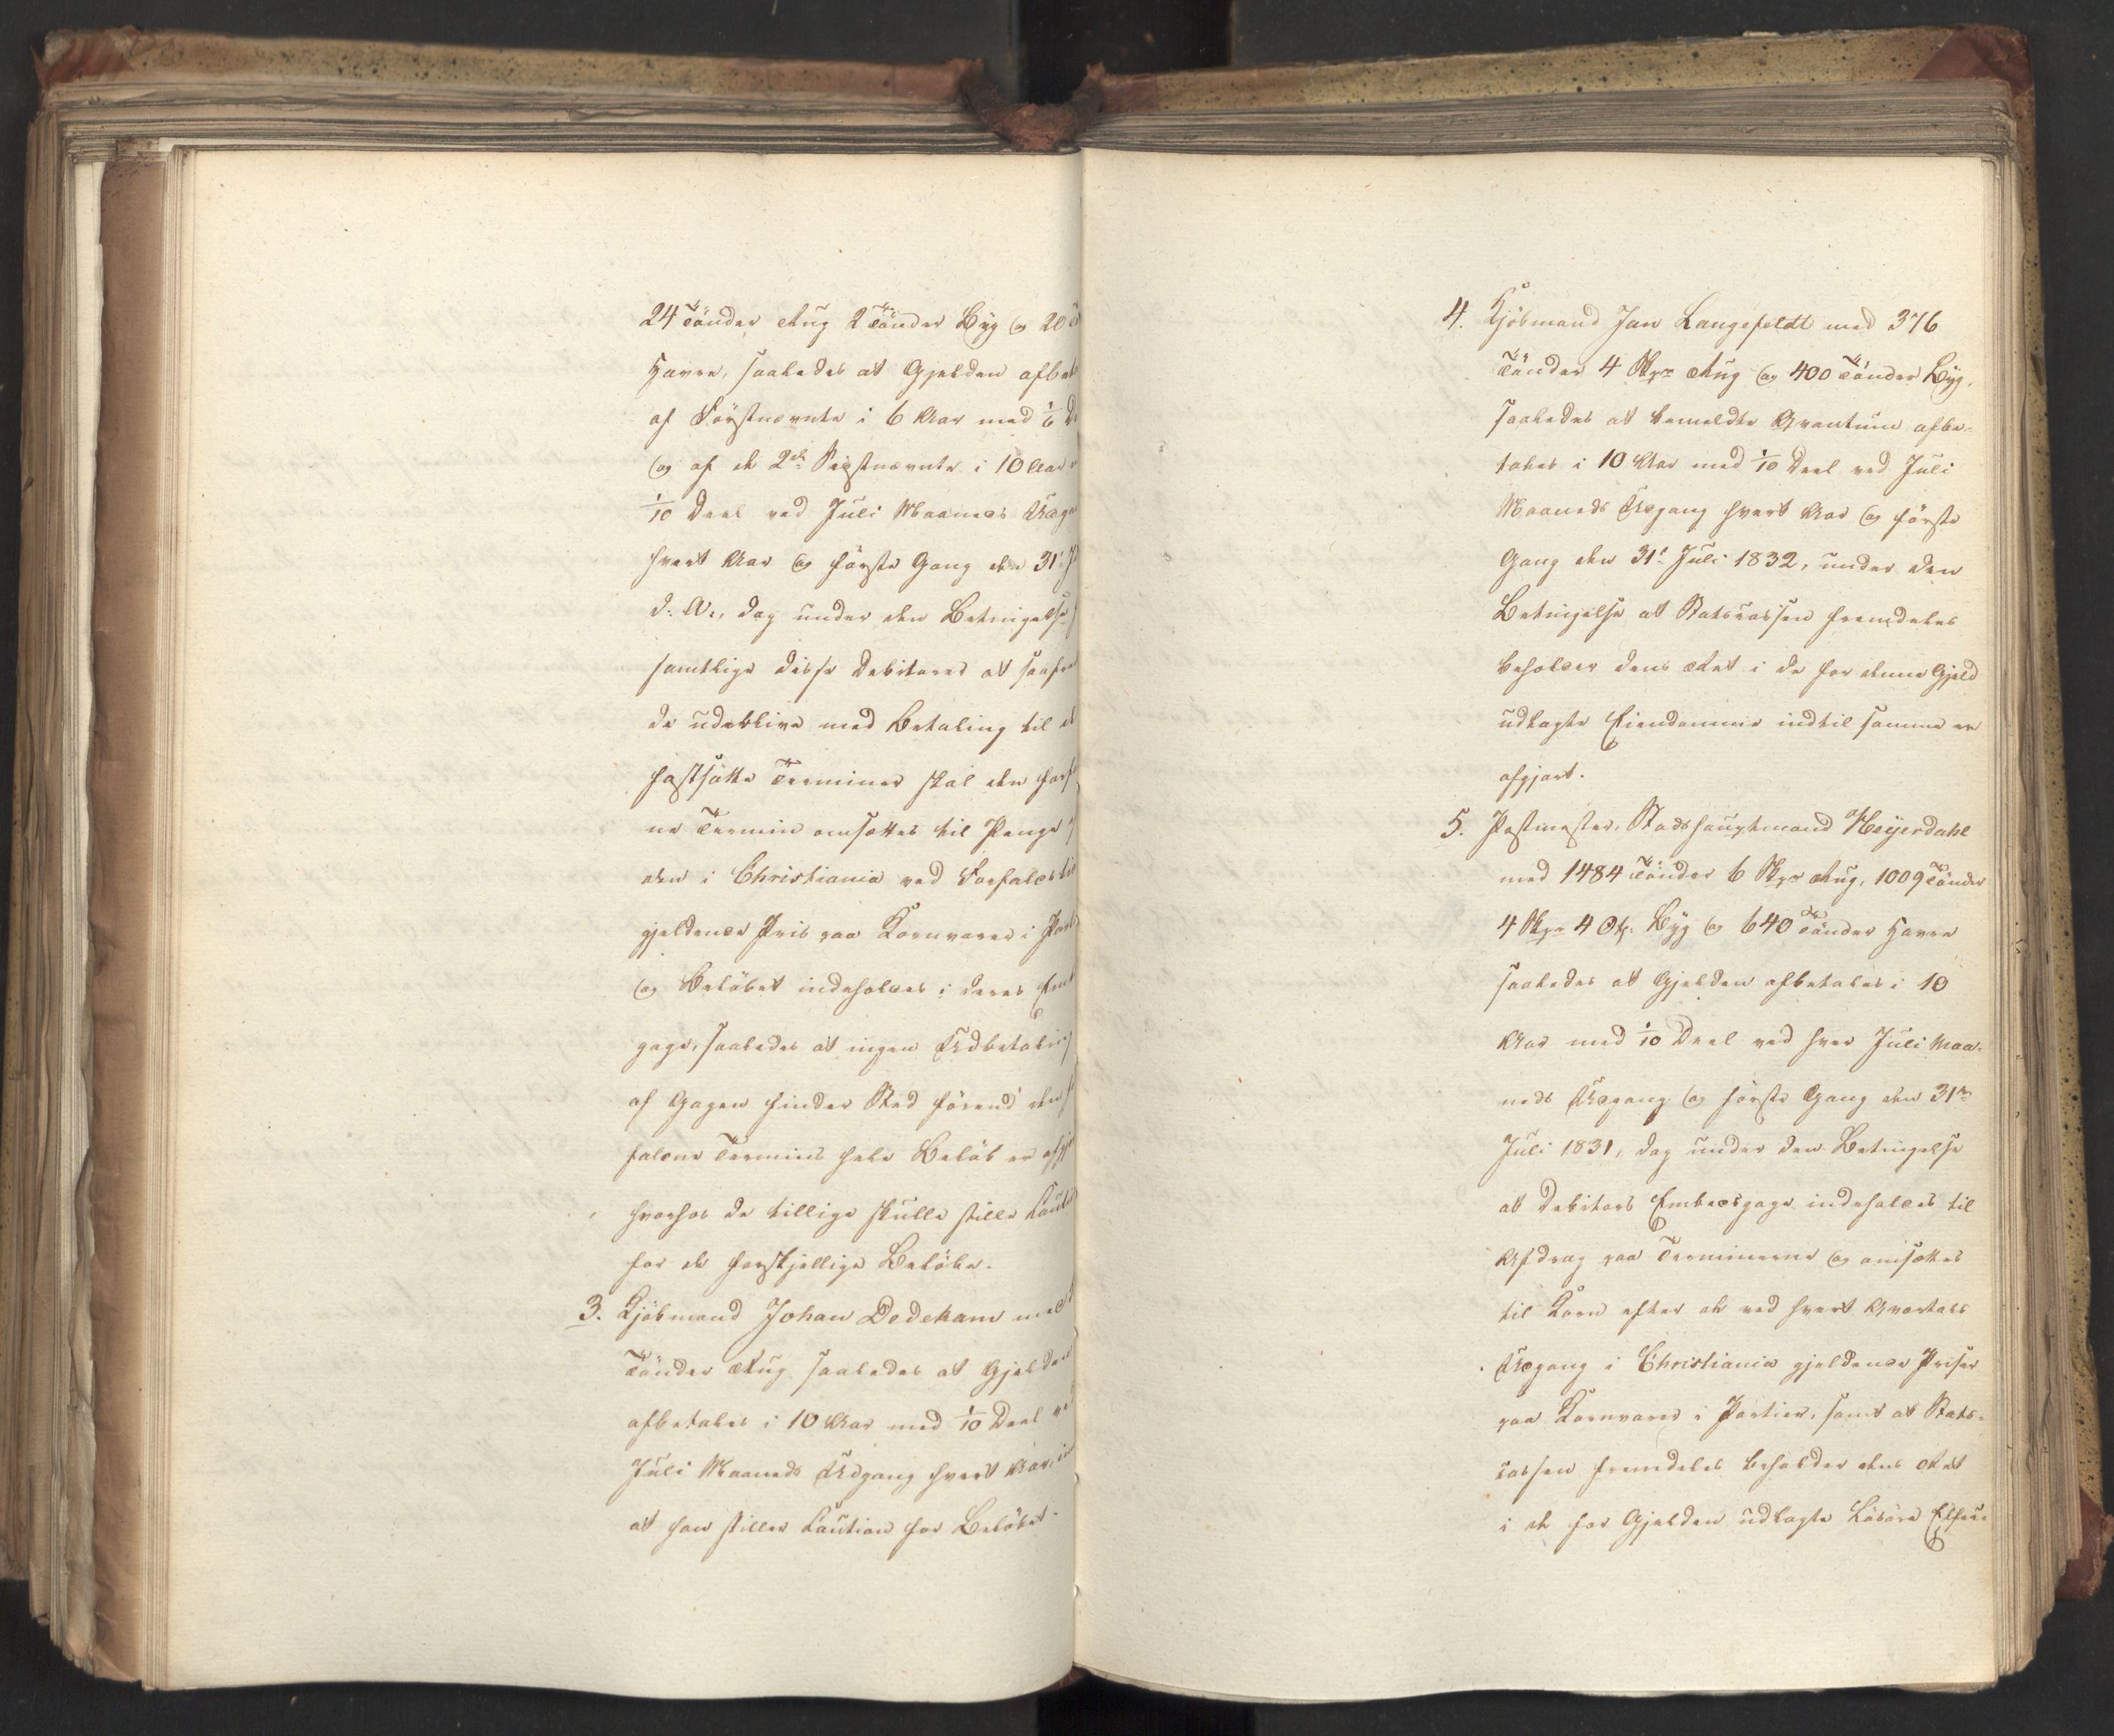 24 Tönder Rug 2 Tönder Byg og 20
Havre, saaledes at Gjelden afbet
af Förstnævnte i 6 Aar med 1/6 D
og af de 2de Sidstnævnte i 10 Aar
1/10 Deel ved Juli Maaneds Udga
hvert Aar og förste Gang den 31t
d: A:, dog under den Betingelse
samtlige disse Debitores at saafre
de udeblive med Betaling til d
fastsatte Terminer skal den forf
ne Termin omsættes til Penge
den i Christiania ved Forfaldsti
gjeldende Priis paa Kornvarer i Par
og Belöbet indeholdes i deres Em
gage, saaledes at ingen Udbetaling
af Gagen finder Sted förend den
faldne Termins hele Belöb er afgj
hvorhos de tillige skulle stille Caut
for de forskjellige Belöb.
3. Kjöbmand Johan Dedekam med
Tönder Rug saaledes at Gjelden
afbetales i 10 Aar med 1/10 Deel ve
Juli Maaneds Udgang hvert Aar,
at han stiller Caution for Belöbet.
4. Kjöbmand Jan Langefeldt med 376
Tönder 4 Skpr Rug og 400 Tönder Byg,
saaledes at bemeldte Qvantum afbe-
tales i 10 Aar med 1/10 Deel ved Juli
Maaneds Udgang hvert Aar og förste
Gang den 31t Juli 1832, under den
Betingelse at Statscassen fremdeles
beholder dens Ret i de for denne Gjeld
udlagte Eiendomme indtil samme er
afgjort.
5. Postmester, Stadshauptmand Heyerdahl
med 1484 Tönder 6 Skpr Rug, 1009 Tönder
4 Skpr 4 Otk. Byg og 640 Tönder Havre
saaledes at Gjelden afbetales i 10
Aar med 1/10 Deel ved hver Juli Maa-
neds Udgang og förste Gang den 31te
Juli 1831, dog under den Betingelse
at Debitors Embedsgage indeholdes til
Afdrag paa Terminerne og omsættes
til Korn efter de ved hvert Qvartals
Udgang i Christiania gjeldende Priser
paa Kornvarer i Partier, samt at Stats-
cassen fremdeles beholder dens Ret
i de for Gjelden udlagte Lösöre